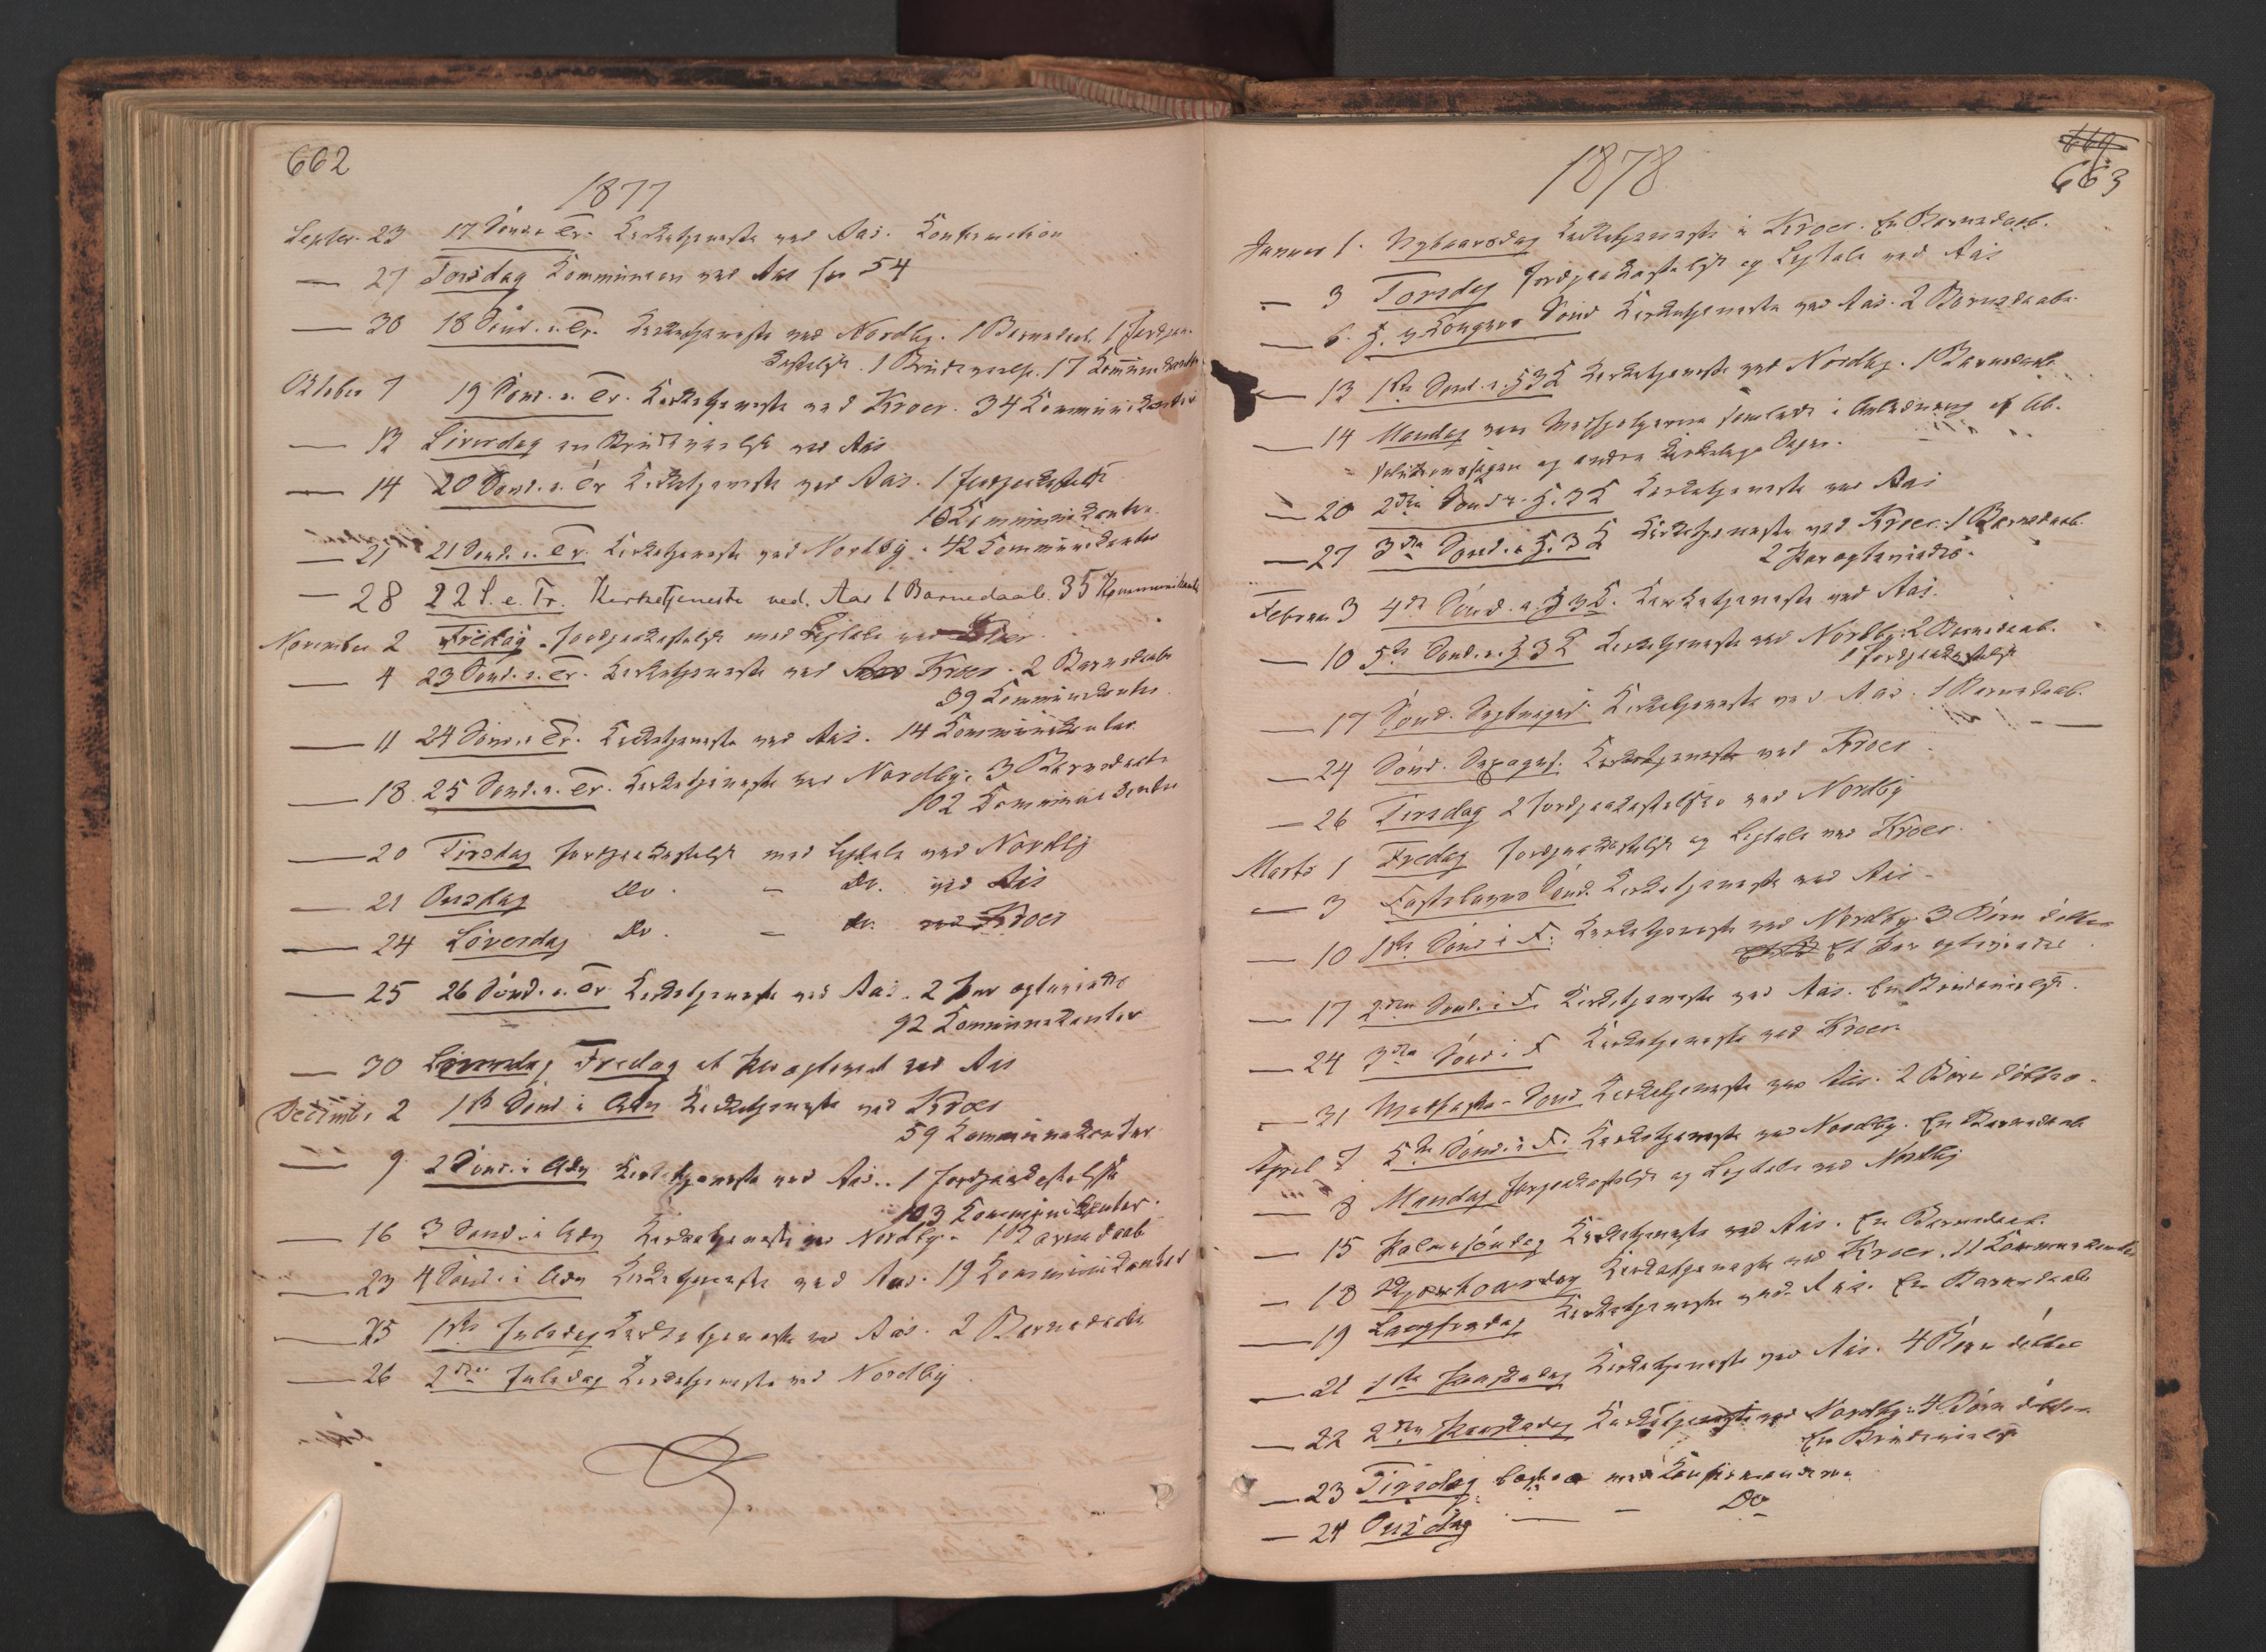 662
1877
Septbr. 23 17 Sønd. e. Tr. Kirketjeneste ved Aas. Confirmation
— 27 Torsdag Kommunion ved Aas for 54
— 30 18 Sønd. e. Tr. Kirketjeneste ved Nordby. 1 Barnedaab 1 Jordpaa-
kastelse. 1 Brudevielse. 17 Kommunikanter
Oktober 7 19 Sønd. e. Tr. Kirketjeneste ved Kroer. 34 Kommunikanter
— 13 Löverdag en Brudevielse ved Aas
— 14 20 Sønd. e. Tr. Kirketjeneste ved Aas. 1 Jordpaakastelse
16 Kommunikanter
— 21 21 Sønd. e. Tr. Kirketjeneste ved Nordby. 42 Kommunikanter
— 28 22 S. e. Tr. Kirketjeneste ved. Aas 1 Barnedaab. 35 Kommunikanter
November 2 Fredag Jordpaakastelse med Ligtale ved Kroer
— 4 23 Sønd. e. Tr. Kirketjeneste ved Kroer. 2 Barnedaabe
39 Kommunikanter
— 11 24 Sønd. e. Tr. Kirketjeneste ved Aas. 14 Kommunikanter
— 18 25 Sønd. e. Tr. Kirketjeneste ved Nordby. 3 Barnedaabe
102 Kommunikanter
— 20 Tirsdag Jordpaakastelse med Ligtale ved Nordby
— 21 Onsdag Do. – do. ved Aas
— 24 Löverdag Do. – do. ved Kroer
— 25 26 Sønd. e. Tr. Kirketjeneste ved Aas. 2 Par ægteviede
92 Kommunikanter
— 30 Löverdag Fredag et Par ægteviet ved Aas
December 2 1ste Sønd i Adv Kirketjeneste ved Kroer
59 Kommunikanter
— 9 2 Sønd. i Adv Kirketjeneste ved Aas. 1 Jordpaakastelse
103 Kommunikanter.
— 16 3 Sønd. i Adv Kirketjeneste ved Nordby. 1 Barnedaab
— 23 4 Sønd. i Adv Kirketjeneste ved Aas. 19 Kommunikanter
— 25 1ste Juledag Kirketjeneste ved Aas. 2 Barnedaabe
— 26 2den Juledag Kirketjeneste ved Nordby
1878
663
Januar 1. Nytaarsdag Kirketjeneste i Kroer. En Barnedaab.
— 3 Torsdag Jordpaakastelse og Ligtale ved Aas
— 6. H. 3 Kongers Sønd Kirketjeneste ved Aas. 2 Barnedaabe
— 13 1ste Sønd. e. H3K Kirketjeneste ved Nordby. 1 Barnedaab
— 14 Mandag vare Medhjælperne samlede i Anledning af Ab-
solutionssagen og andre kirkelige Sager.
— 20 2den Sønd e. H. 3 K Kirketjeneste ved Aas
— 27 3die Sønd. e H. 3 K Kirketjeneste ved Kroer. 1 Barnedaab.
2 Par ægteviedes.
Februar 3 4de Sønd. e. H 3 K. Kirketjeneste ved Aas.
— 10 5te Sønd. e. H 3 K Kirketjeneste ved Nordby. 2 Barnedaab.
1 Jordpaakastelse
— 17 Sønd. Septuages. Kirketjeneste ved Aas. 1 Barnedaab.
— 24 Sønd. Sexages. Kirketjeneste ved Kroer
— 26 Tirsdag 2 Jordpaakastelser ved Nordby
Marts 1 Fredag Jordpaakastelse og Ligtale ved Kroer.
— 3 Fastelavns Sønd. Kirketjeneste ved Aas.
— 10 1ste Sønd i F. Kirketjeneste ved Nordby. 3 Børn døbte
Et Par ægteviedes
— 17 2den Sønd. i F. Kirketjeneste ved Aas. En Brudevielse.
— 24 3die Sønd i F Kirketjeneste ved Kroer
— 31 Midfaste-Sønd Kirketjeneste ved Aas. 2 Børn døbtes.
April 7 5te Sønd. i F. Kirketjeneste ved Nordby. En Barnedaab
— 8 Mandag Jordpaakastelse og Ligtale ved Nordby
— 15 Palmesøndag Kirketjeneste ved Aas. En Barnedaab.
— 18 Skjærtorsdag Kirketjeneste ved Kroer. 11 Kommunikanter
— 19 Langfredag Kirketjeneste ved Aas. En Barnedaab
— 21 1ste Paaskedag Kirketjeneste ved Aas. 4 Børn døbtes
— 22 2den Paaskedag Kirketjeneste ved Nordby. 4 Børn døbte
En Brudevielse
— 23 Tirsdag læste med Konfirmanderne
— 24 Onsdag — – Do